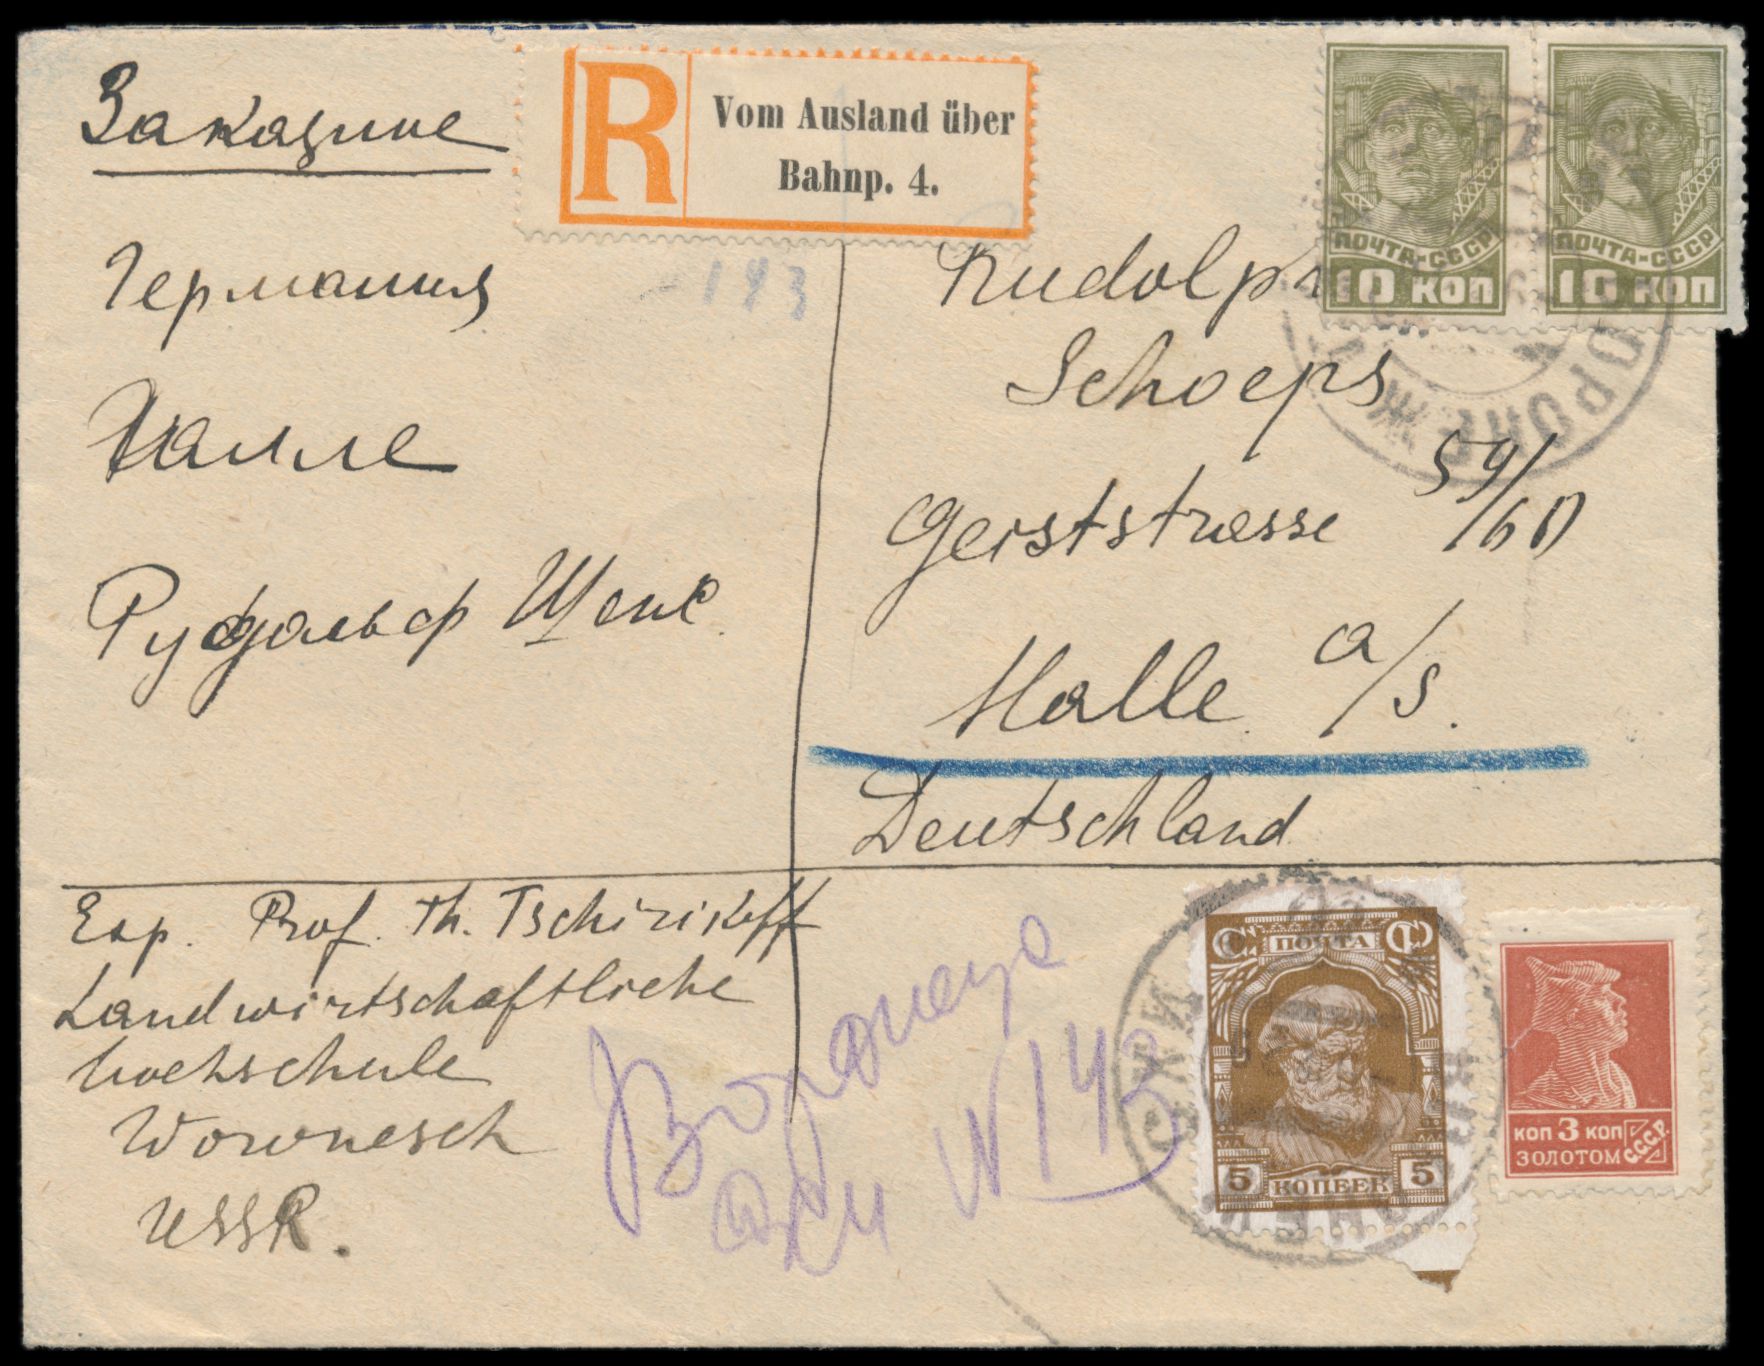 Заказное
R
Vom Ausland über
Bahnp. 4.
ПОЧТА-СССР
10 КОП
ПОЧТА-СССР
10 КОП
Германия
143
Rudolph
Schoeps
Галле
Geiststrasse 59/60
Рудольф Щепс
Halle a/S.
Deutschland
Exp. Prof. Th. Tschirikoff
Landwirtschaftliche
Hochschule
Woronesch
USSR.
Воронеж
N 143
ПОЧТА
5 КОПЕЕК 5
КОП 3 КОП
ЗОЛОТОМ
С.С.С.Р.